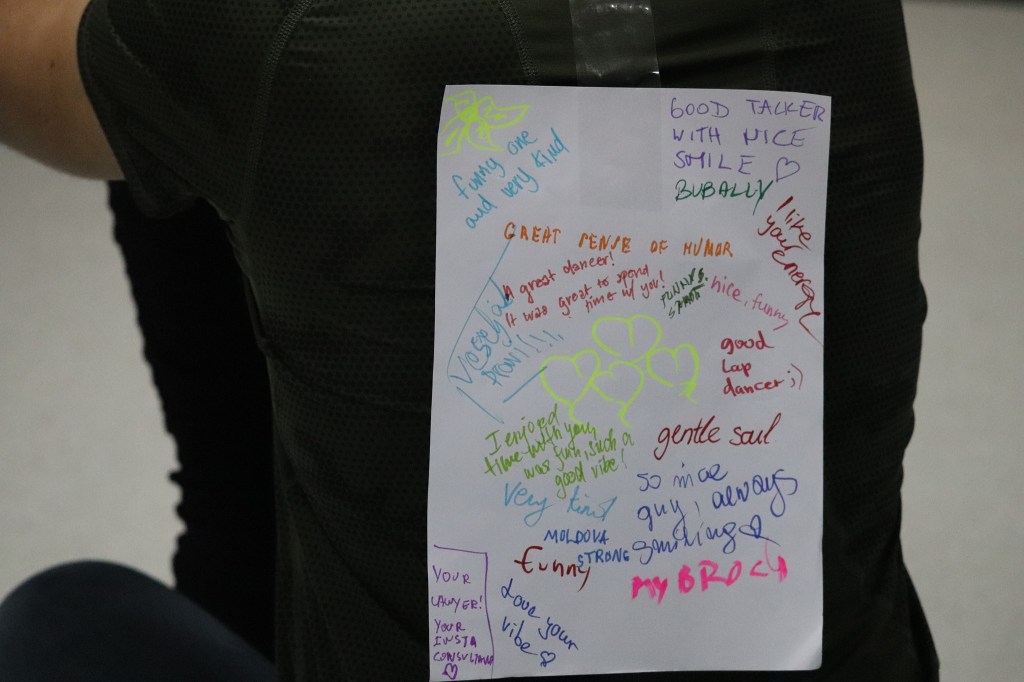 GOOD TALKER
WITH NICE
SMILE
BUBALLY
funny one
and very kind
I like
your
energy
GREAT SENSE OF HUMOR
A great dancer!
It was great to spend
time w/ you!
FUNNY &
nice, funny
good
lap
dancer ;)
I enjoied
time with you,
was fun, such a
good vibe!
gentle soul
so nice
guy, always
smiling
very kind
MOLDOVA
STRONG
funny
MY BRO
YOUR
LAWYER!
YOUR
INSTA
CONSULTANT
Love your
vibe